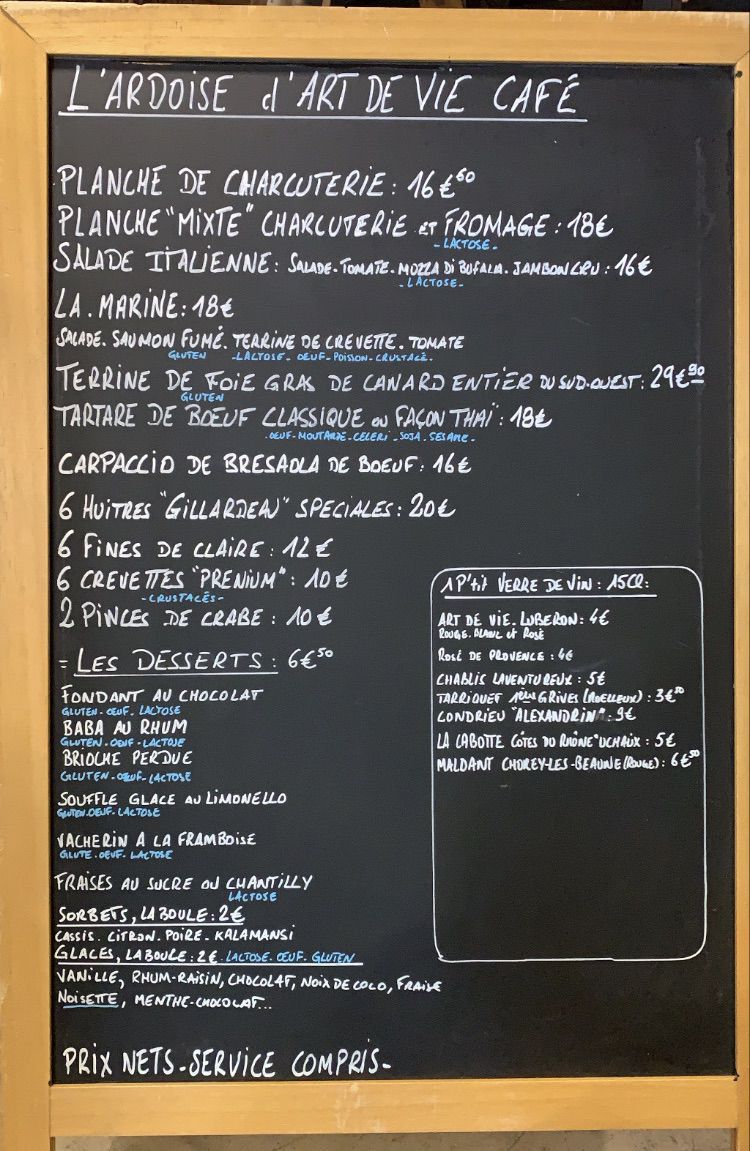 L'ARDOISE d'ART DE VIE CAFÉ
PLANCHE DE CHARCUTERIE : 16€60
PLANCHE "MIXTE" CHARCUTERIE et FROMAGE : 18€
- LACTOSE -
SALADE ITALIENNE : SALADE. TOMATE. MOZZA DI BUFALA. JAMBON CRU : 16€
- LACTOSE -
LA. MARINE : 18€
SALADE. SAUMON FUMÉ. TERRINE DE CREVETTE. TOMATE
GLUTEN - LACTOSE - OEUF - POISSON - CRUSTACE.
TERRINE DE FOIE GRAS DE CANARD ENTIER DU SUD-OUEST : 29€90
GLUTEN
TARTARE DE BOEUF CLASSIQUE ou FAÇON THAÏ : 18€
- OEUF - MOUTARDE - CELERI - SOJA - SESAME -
CARPACCIO DE BRESAOLA DE BOEUF : 16€
6 HUITRES "GILLARDEAU" SPECIALES : 20€
6 FINES DE CLAIRE : 12€
6 CREVETTES "PRENIUM" : 10€
- CRUSTACÉS -
2 PINCES DE CRABE : 10€
= LES DESSERTS : 6€50
FONDANT AU CHOCOLAT
GLUTEN - OEUF. LACTOSE
BABA AU RHUM
GLUTEN - OEUF - LACTOSE
BRIOCHE PERDUE
GLUTEN - OEUF - LACTOSE
SOUFFLE GLACE AU LIMONELLO
GLUTEN. OEUF - LACTOSE
VACHERIN A LA FRAMBOISE
GLUTE. OEUF. LACTOSE
FRAISES AU SUCRE OU CHANTILLY
LACTOSE
SORBETS, LA BOULE : 2€
CASSIS. CITRON. POIRE. KALAMANSI
GLACES, LA BOULE : 2€. LACTOSE. OEUF. GLUTEN
VANILLE, RHUM-RAISIN, CHOCOLAT, NOIX DE COCO, FRAISE
NOISETTE, MENTHE-CHOCOLAT...
PRIX NETS - SERVICE COMPRIS -
1 P'tit VERRE DE VIN : 15CL :
ART DE VIE. LUBERON : 4€
ROUGE. BLANC et ROSÉ
ROSÉ DE PROVENCE : 4€
CHABLIS LAVENTUREUX : 5€
TARRIQUET 1ÈRES GRIVES (MOELLEUX) : 3€50
CONDRIEU "ALEXANDRIN" : 9€
LA CABOTTE CÔTES DU RHÔNE "UCHAUX : 5€
MALDANT CHOREY-LES-BEAUNE (ROUGE) : 6€50